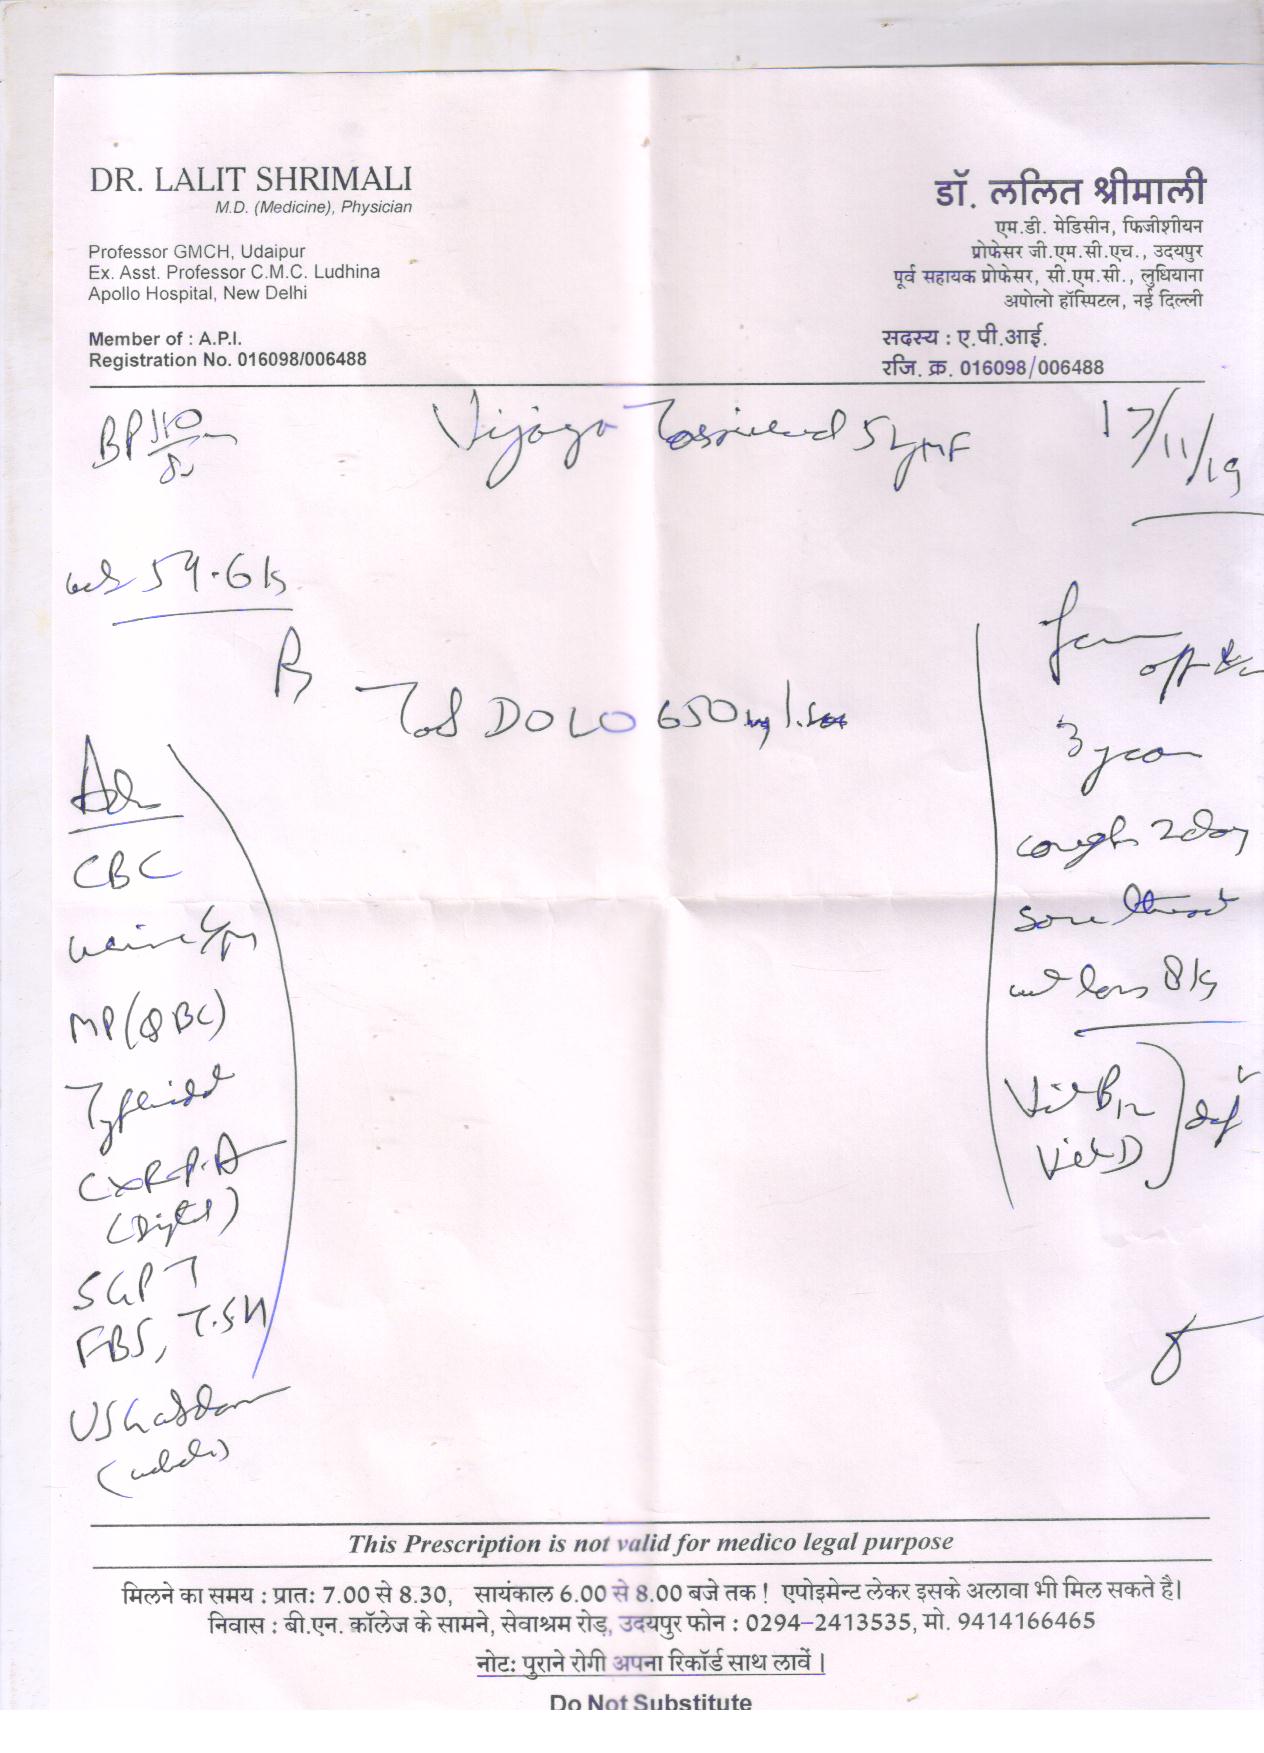 DR. LALIT SHRIMALI
M.D. (Medicine), Physician
Professor GMCH, Udaipur
Ex. Asst. Professor C.M.C. Ludhina
Apollo Hospital, New Delhi
Member of : A.P.I.
Registration No. 016098/006488
डॉ. ललित श्रीमाली
एम.डी. मेडिसीन, फिजीशीयन
प्रोफेसर जी.एम.सी.एच., उदयपुर
पूर्व सहायक प्रोफेसर, सी.एम.सी., लुधियाना
अपोलो हॉस्पिटल, नई दिल्ली
सदस्य : ए.पी.आई.
रजि. क्र. 016098/006488
BP 110/80
Vijaya
17/11/19
Tab DOLO 650mg
Adv
CBC
Urine
MP(QBC)
Typhidot
CXR-P.A
(Digital)
SGPT
FBS, T.SH
USG abdomen
3 year
cough 2 day
sore throat
wt loss 8 kg
Vit B12
Vit D
def
This Prescription is not valid for medico legal purpose
मिलने का समय : प्रातः 7.00 से 8.30, सायंकाल 6.00 से 8.00 बजे तक ! एपोइमेन्ट लेकर इसके अलावा भी मिल सकते है।
निवास : बी.एन. कॉलेज के सामने, सेवाश्रम रोड़, उदयपुर फोन : 0294-2413535, मो. 9414166465
नोटः पुराने रोगी अपना रिकॉर्ड साथ लावें ।
Do Not Substitute